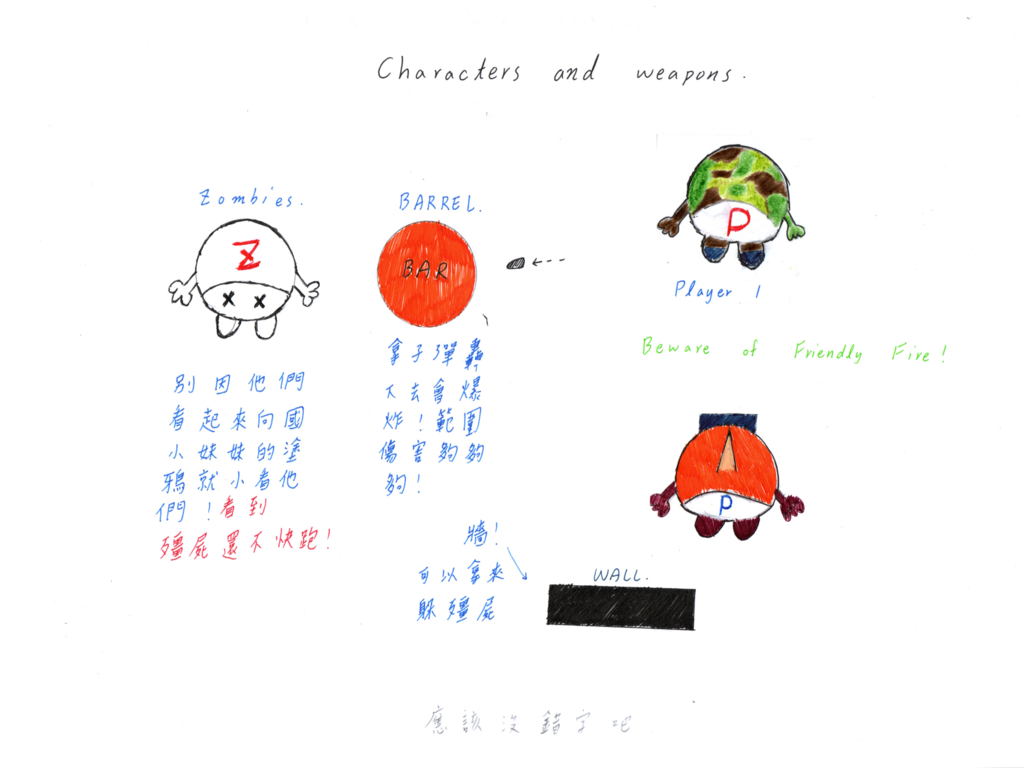 Characters and weapons.
Zombies.
Z
x x
別因他們
看起來向國
小妹妹的塗
鴉就小看他
們！看到
殭屍還不快跑！
BARREL.
BAR
拿子彈轟
下去會爆
炸！範圍
傷害夠夠
夠！
P
Player 1
Beware of Friendly Fire!
P
牆！
可以拿來
躲殭屍
WALL.
應該沒錯字吧